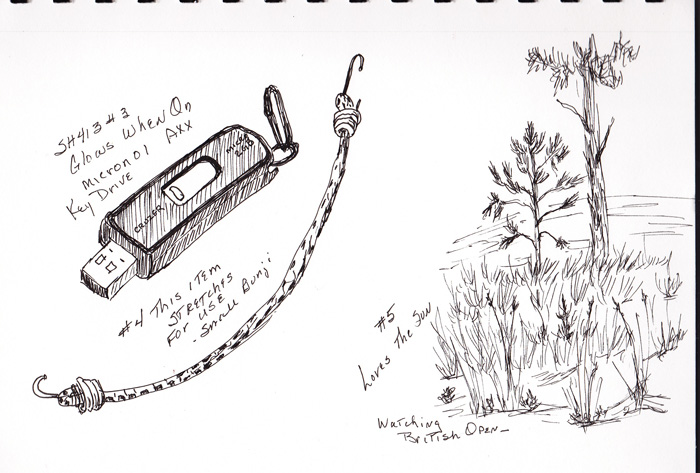 SH41 3 #3
Glows When On
micron 01 Axx
Key Drive
CRUZER
MICRO
#4 This ITEM
STRETCHES
FOR USE
- Small Bunji
#5
Loves The Sun
Watching
British Open-